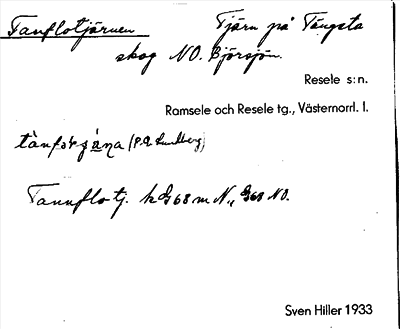 Tanflotjärnen Tjärn på Tängsta
skog NO. Björsjön.
Resele s:n.
Ramsele och Resele tg., Västernorrl. l.
(P.A. Lundberg)
Tannflotj. k G68 m N., G68 NO.
Sven Hiller 1933